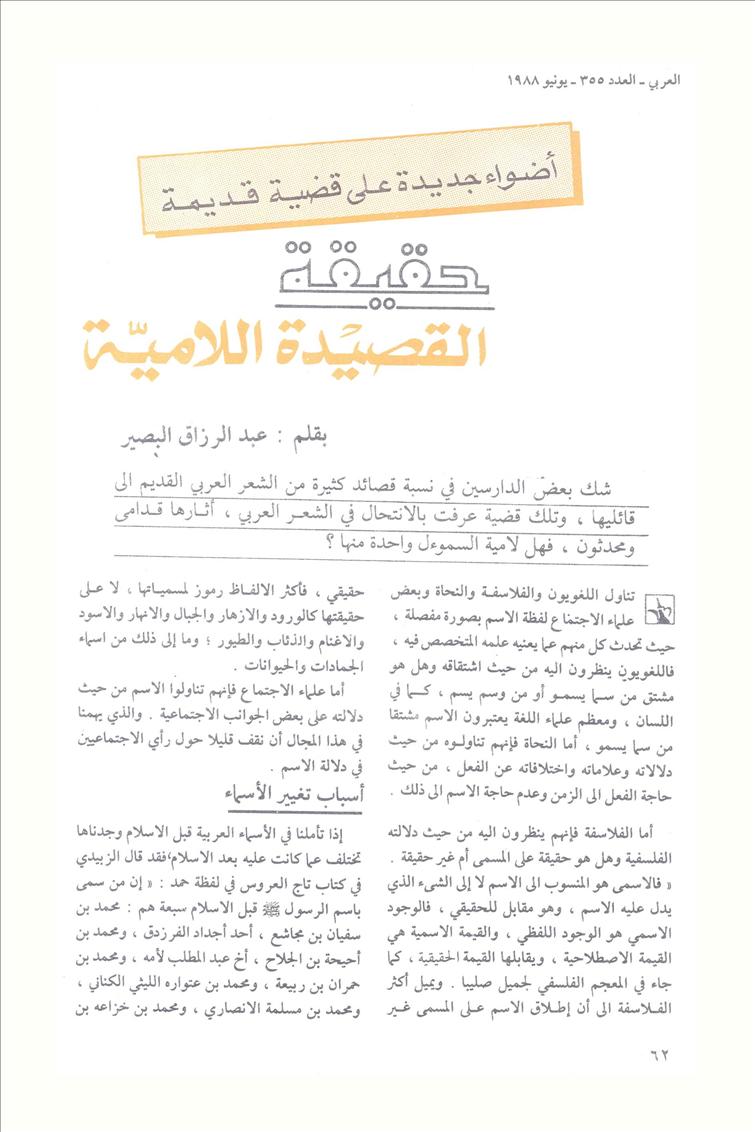 العربي ـ العدد ٣٥٥ ـ يونيو ١٩٨٨
أضواء جديدة على قضية قديمة
حقيقة
القصيدة اللاميّة
بقلم : عبد الرزاق البصير
شك بعض الدارسين في نسبة قصائد كثيرة من الشعر العربي القديم الى
قائليها ، وتلك قضية عرفت بالانتحال في الشعر العربي ، أثارها قدامى
ومحدثون ، فهل لامية السموءل واحدة منها ؟
تناول اللغويون والفلاسفة والنحاة وبعض
علماء الاجتماع لفظة الاسم بصورة مفصلة ،
حيث تحدث كل منهم عما يعنيه علمه المتخصص فيه ،
فاللغويون ينظرون اليه من حيث اشتقاقه وهل هو
مشتق من سما يسمو أو من وسم يسم ، كما في
اللسان ، ومعظم علماء اللغة يعتبرون الاسم مشتقا
من سما يسمو ، أما النحاة فإنهم تناولوه من حيث
دلالاته وعلاماته واختلافاته عن الفعل ، من حيث
حاجة الفعل الى الزمن وعدم حاجة الاسم الى ذلك .
أما الفلاسفة فإنهم ينظرون اليه من حيث دلالته
الفلسفية وهل هو حقيقة على المسمى أم غير حقيقة .
« فالاسمى هو المنسوب الى الاسم لا إلى الشىء الذي
يدل عليه الاسم ، وهو مقابل للحقيقي ، فالوجود
الاسمي هو الوجود اللفظي ، والقيمة الاسمية هي
القيمة الاصطلاحية ، ويقابلها القيمة الحقيقية ، كما
جاء في المعجم الفلسفي لجميل صليبا . ويميل أكثر
الفلاسفة الى أن إطلاق الاسم على المسمى غير
حقيقي ، فأكثر الالفاظ رموز لمسمياتها ، لا على
حقيقتها كالورود والازهار والجبال والانهار والاسود
والاغنام والذئاب والطيور ؛ وما إلى ذلك من اسماء
الجمادات والحيوانات .
أما علماء الاجتماع فإنهم تناولوا الاسم من حيث
دلالته على بعض الجوانب الاجتماعية . والذي يهمنا
في هذا المجال أن نقف قليلا حول رأي الاجتماعيين
في دلالة الاسم .
أسباب تغيير الأسماء
إذا تأملنا في الأسماء العربية قبل الاسلام وجدناها
تختلف عما كانت عليه بعد الاسلام،فقد قال الزبيدي
في كتاب تاج العروس في لفظة حمد : « إن من سمى
باسم الرسول ﷺ قبل الاسلام سبعة هم : محمد بن
سفيان بن مجاشع ، أحد أجداد الفرزدق ، ومحمد بن
أحيحة بن الجلاح ، أخ عبد المطلب لأمه ، ومحمد بن
حمران بن ربيعة ، ومحمد بن عتواره الليثي الكناني ،
ومحمد بن مسلمة الانصاري ، ومحمد بن خزاعه بن
٦٢